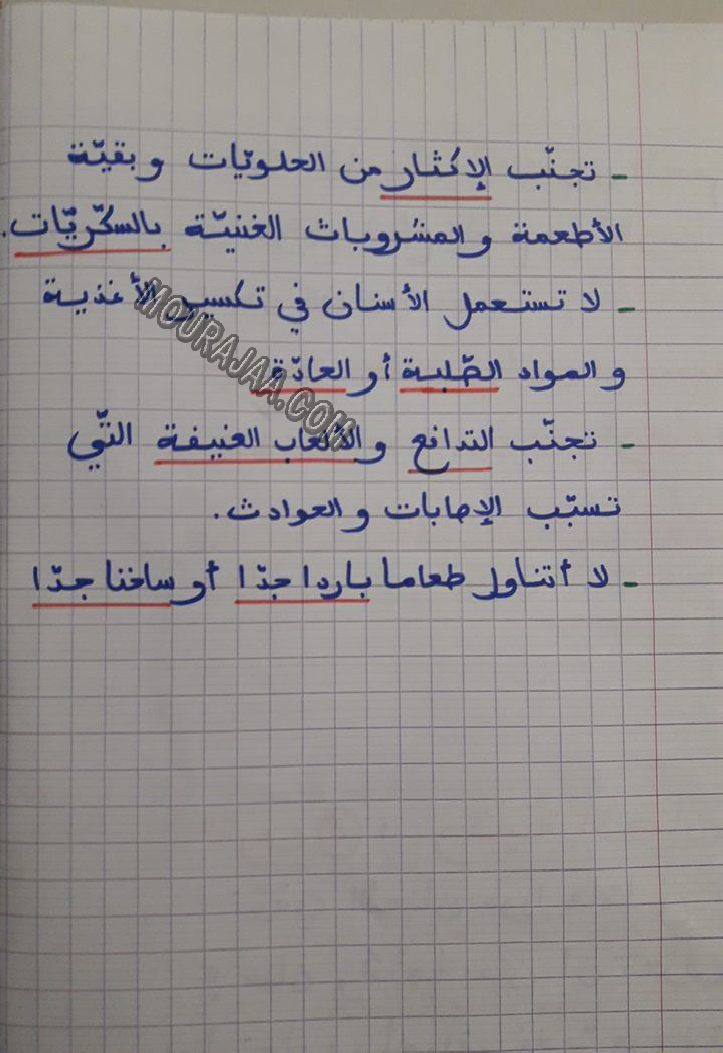 - تجنّب الإكثار من الحلويّات وبقيّة
الأطعمة والمشروبات الغنيّة بالسكّريّات.
- لا تستعمل الأسنان في تكسير الأغذية
والمواد الصّلبة أو الحادّة.
- تجنّب التدافع والألعاب العنيفة التّي
تسبّب الإصابات والحوادث.
- لا أتناول طعاما باردا جدّا أو ساخنا جدّا
MOURAJAA.COM